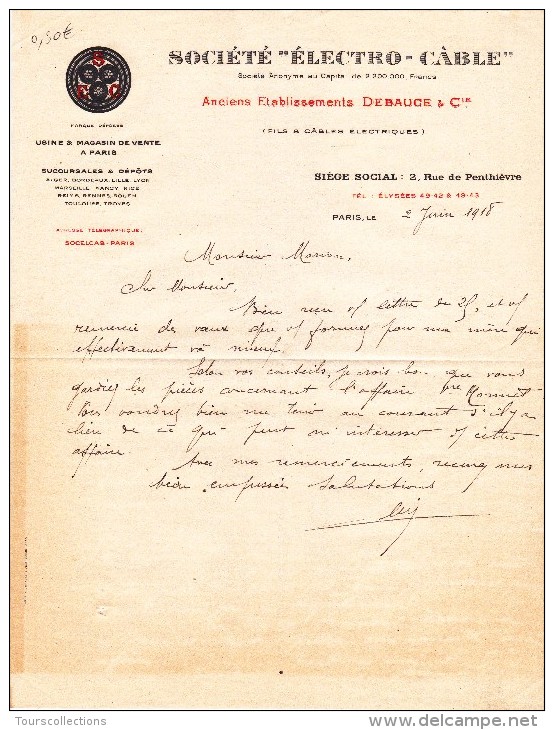 0,50€
SOCIÉTÉ "ÉLECTRO-CÀBLE"
Société Anonyme au Capital de 2.200.000, Francs
Anciens Etablissements DEBAUGE & Cie
(FILS & CÂBLES ELECTRIQUES)
S
E C
MARQUE DÉPOSÉE
USINE & MAGASIN DE VENTE
A PARIS
SUCCURSALES & DÉPÔTS
ALGER, BORDEAUX, LILLE, LYON
MARSEILLE, NANCY, NICE
REIMS, RENNES, ROUEN
TOULOUSE, TROYES
ADRESSE TÉLÉGRAPHIQUE:
SOCELCAB-PARIS
SIÈGE SOCIAL: 2, Rue de Penthièvre
TÉL: ÉLYSÉES 49-42 & 49-43
PARIS, LE 2 Juin 1918
Monsieur
Cher Monsieur,
Bien reçu v/ lettre de 29, et v/
remercie des vœux que v/ formez pour ma mère qui
effectivement va mieux.
Selon vos conseils, je crois bon que vous
gardiez les pièces concernant l'affaire
Vous voudrez bien me tenir au courant s'il y a
lieu de ce qui peut m'intéresser s/ cette
affaire.
Avec mes remerciements, recevez mes
bien empressées salutations
Tourscollections
delcampe.net